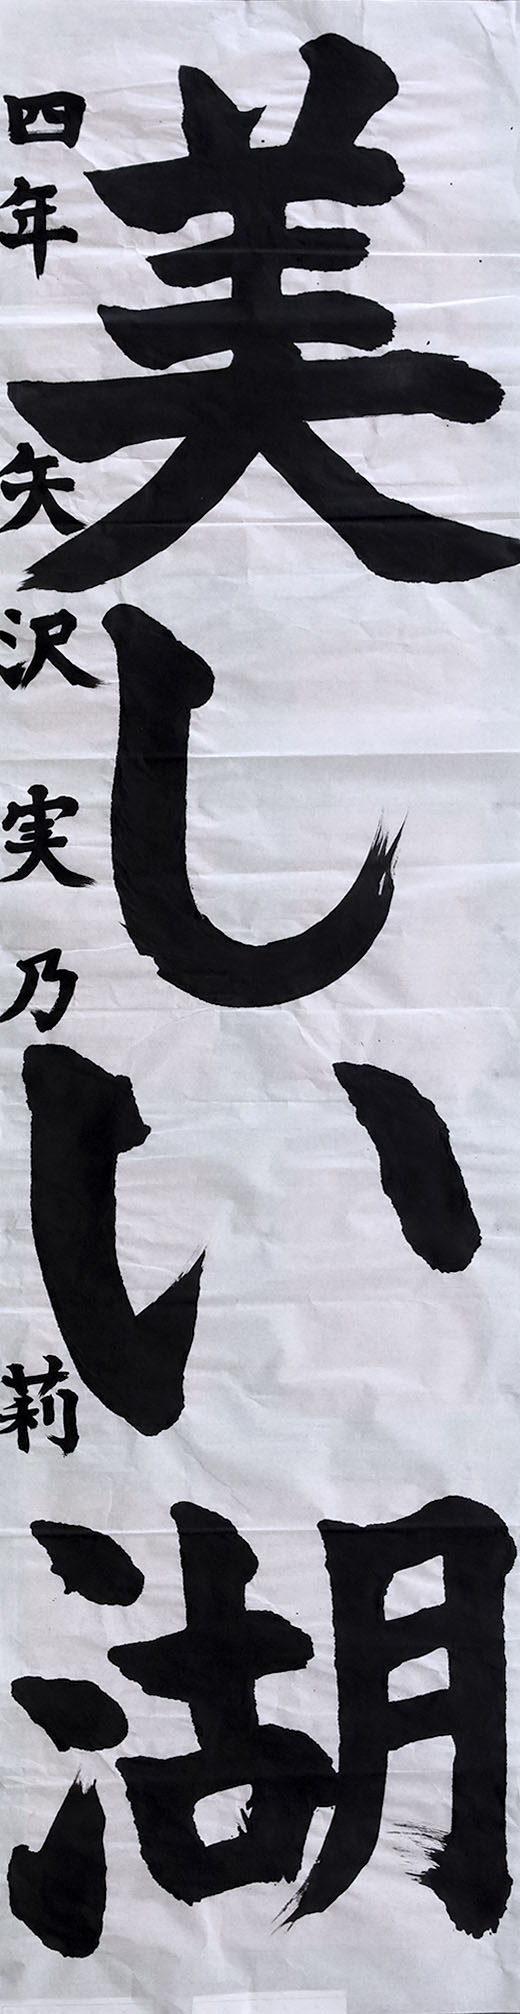 美しい湖
四年 矢沢実乃莉